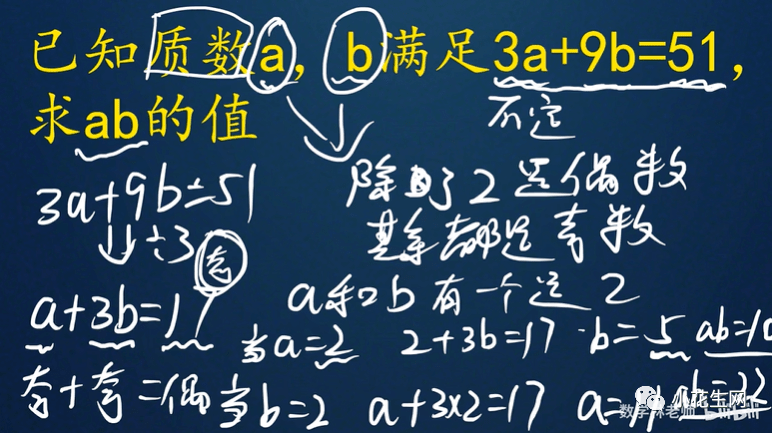 已知质数a，b满足3a+9b=51，
求ab的值
不定
3a+9b=51
÷3
奇
除了2是偶数
其余都是奇数
a+3b=17
a和b有一个是2
当a=2 2+3b=17 b=5 ab=10
奇+奇=偶
当b=2 a+3×2=17 a=11 ab=22
小花生网